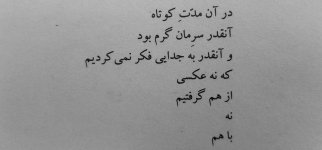 در آن مدّتِ کوتاه
آنقدر سرِمان گرم بود
و آنقدر به جدایی فکر نمی‌کردیم
که نه عکسی
از هم گرفتیم
نه
با هم